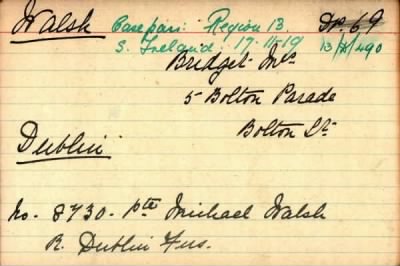 Walsh Case pasi: Region 13 Dr. 69
S. Ireland: 17-11-19 13/X/490
Bridget Mrs
5 Bolton Parade
Bolton St
Dublin
No. 8730. Pte Michael Walsh
R. Dublin Fus.